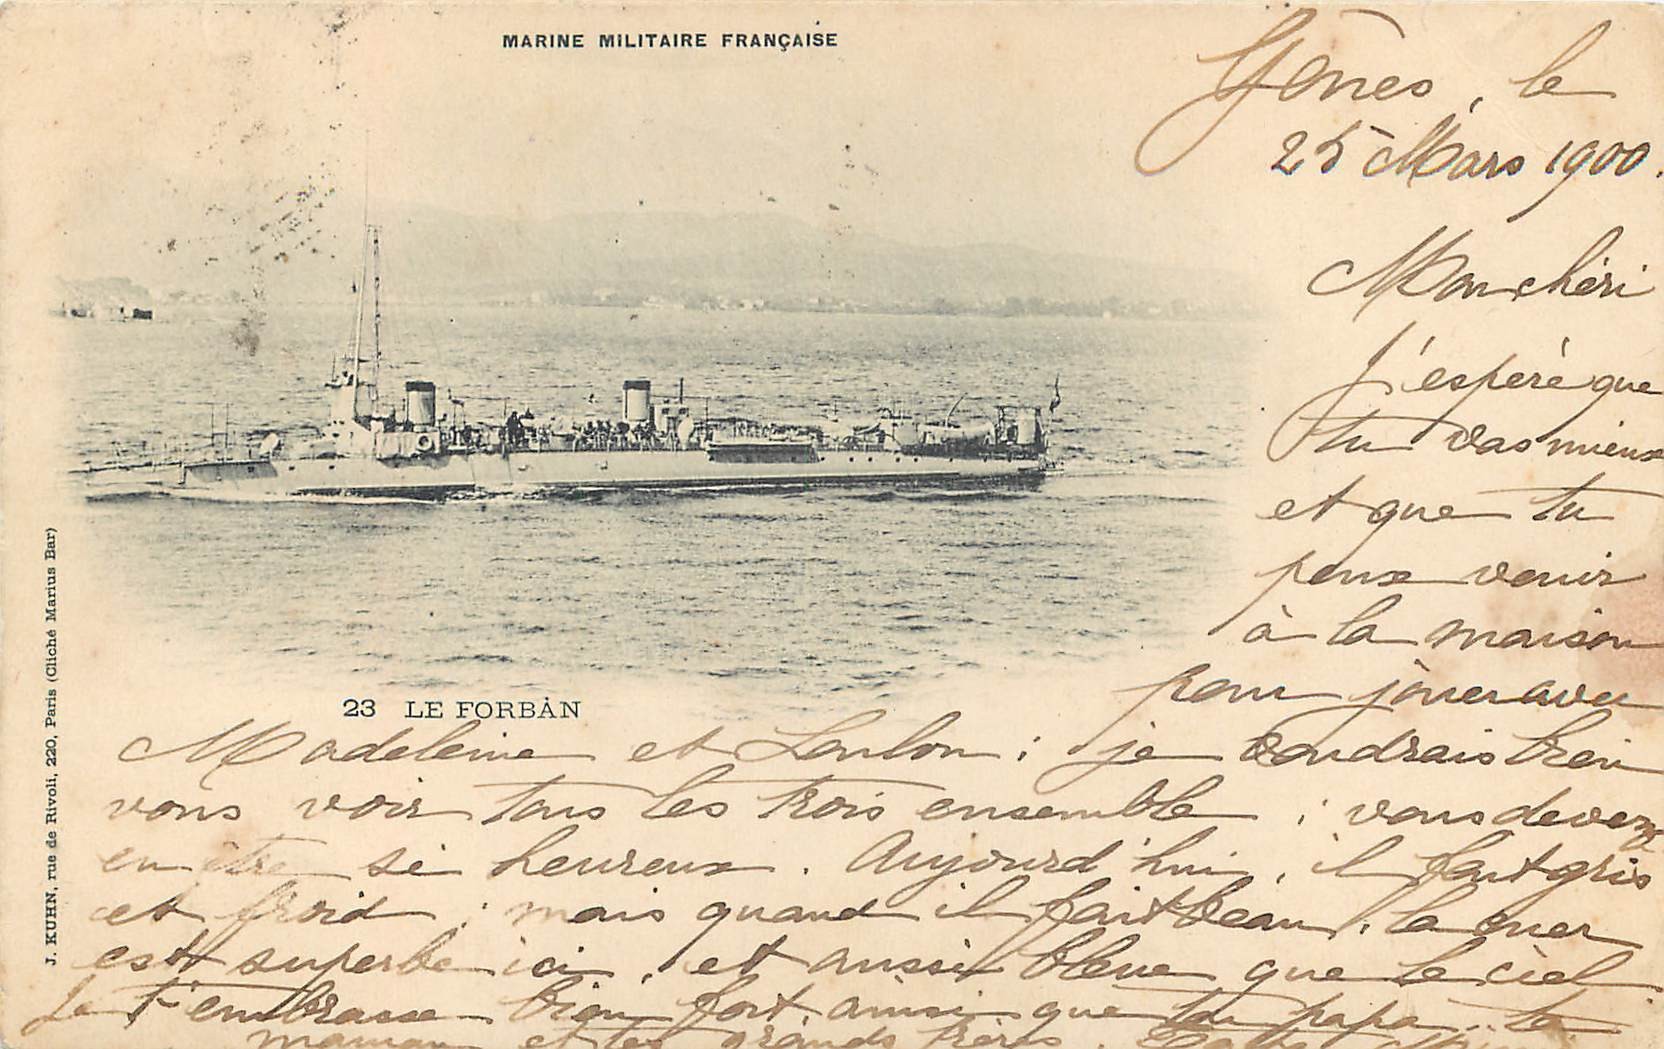 MARINE MILITAIRE FRANÇAISE
Gênes, le
25 Mars 1900.
Mon chéri
J'espère que
tu vas mieux
et que tu
peux venir
à la maison
pour jouer avec
23 LE FORBAN
Madeleine et Loulou ; je voudrais bien
vous voir tous les trois ensemble ; vous devez
en être si heureux. Aujourd'hui, il fait gris
et froid ; mais quand il fait beau, la mer
est superbe ici, et aussi bleue que le ciel.
Je t'embrasse bien fort ainsi que ton papa, ta
maman et tes grands frères.
J. KUHN, rue de Rivoli, 220, Paris (Cliché Marius Bar)